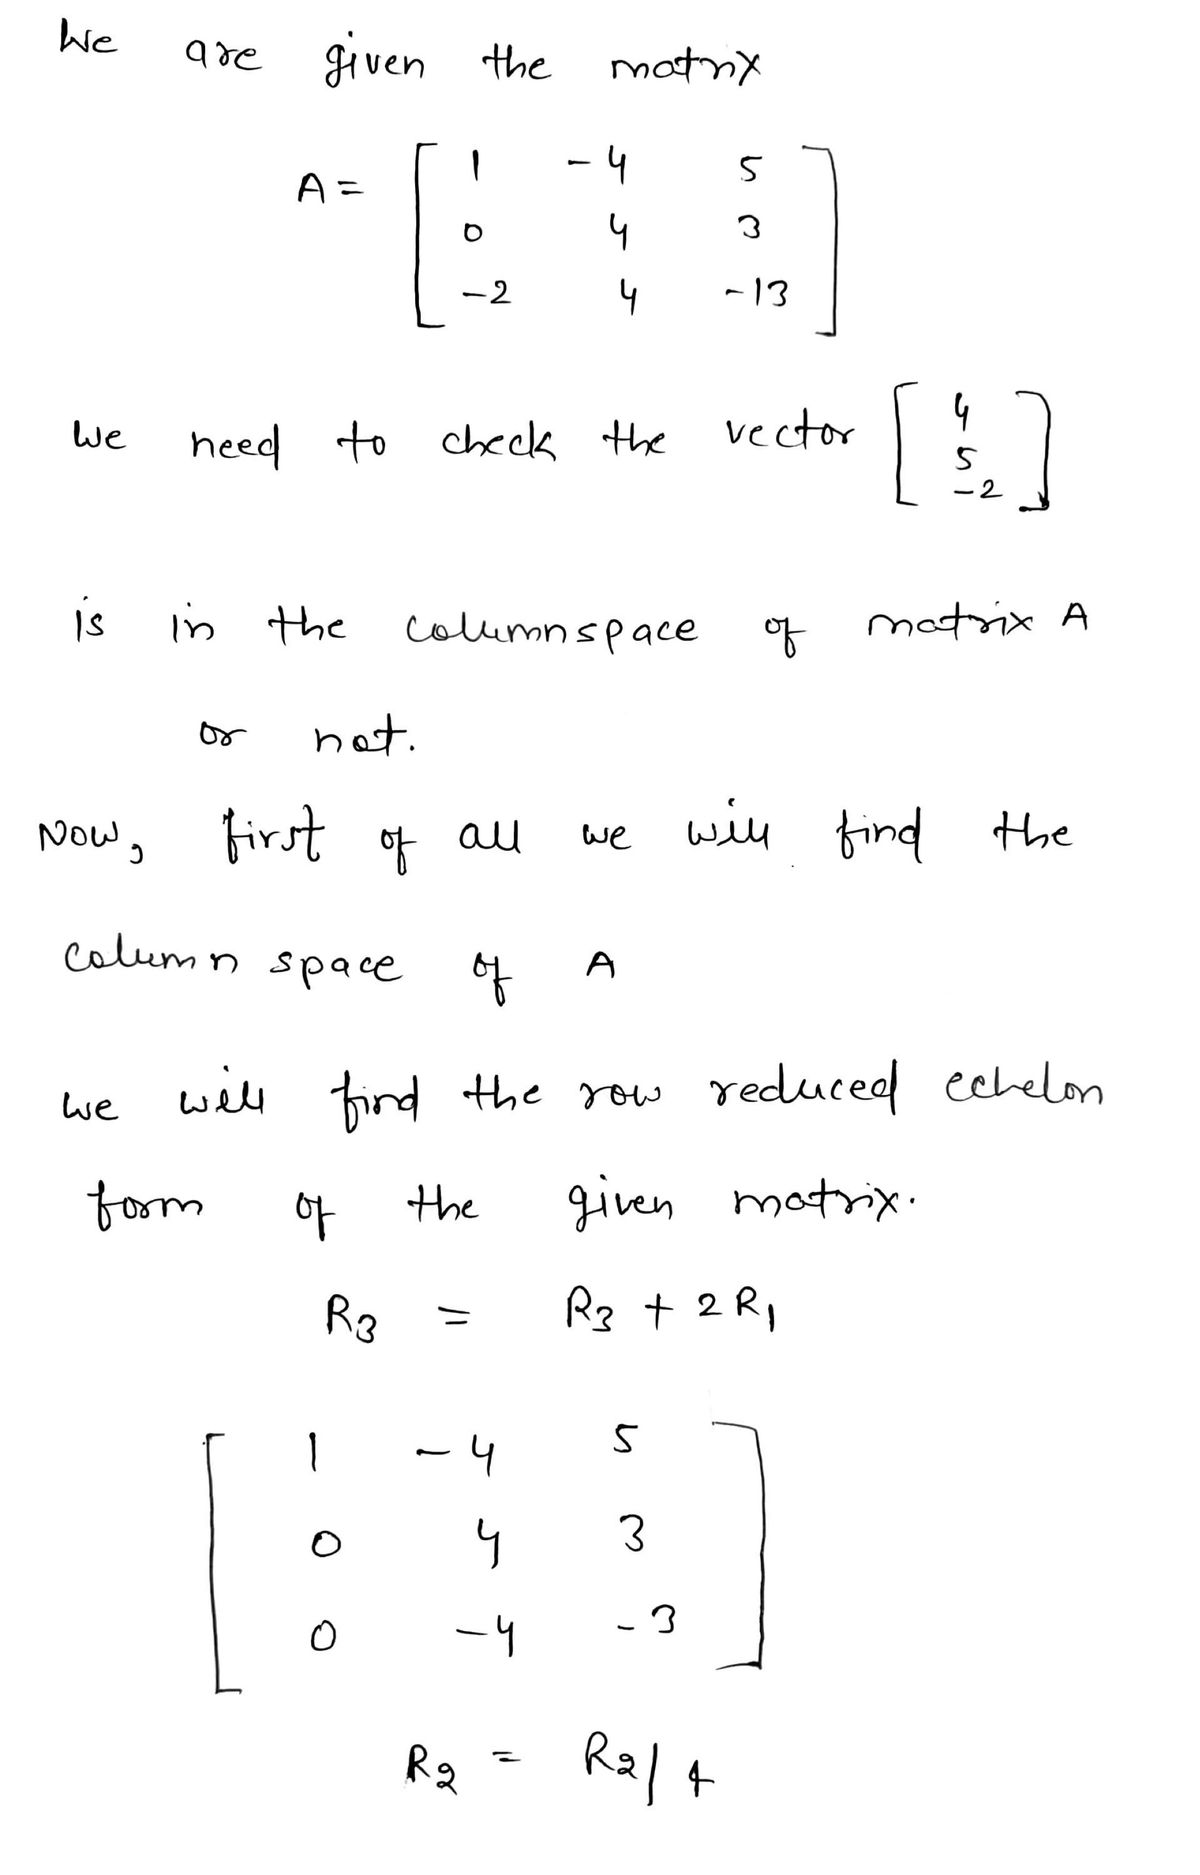 We are given the matrix
A = [ 1 -4 5
0 4 3
-2 4 -13 ]
We need to check the vector [ 4
5
-2 ]
is in the columnspace of matrix A
or not.
Now, first of all we will find the
column space of A
we will find the row reduced echelon
form of the given matrix.
R3 = R3 + 2R1
[ 1 -4 5
0 4 3
0 -4 -3 ]
R2 = R2/4